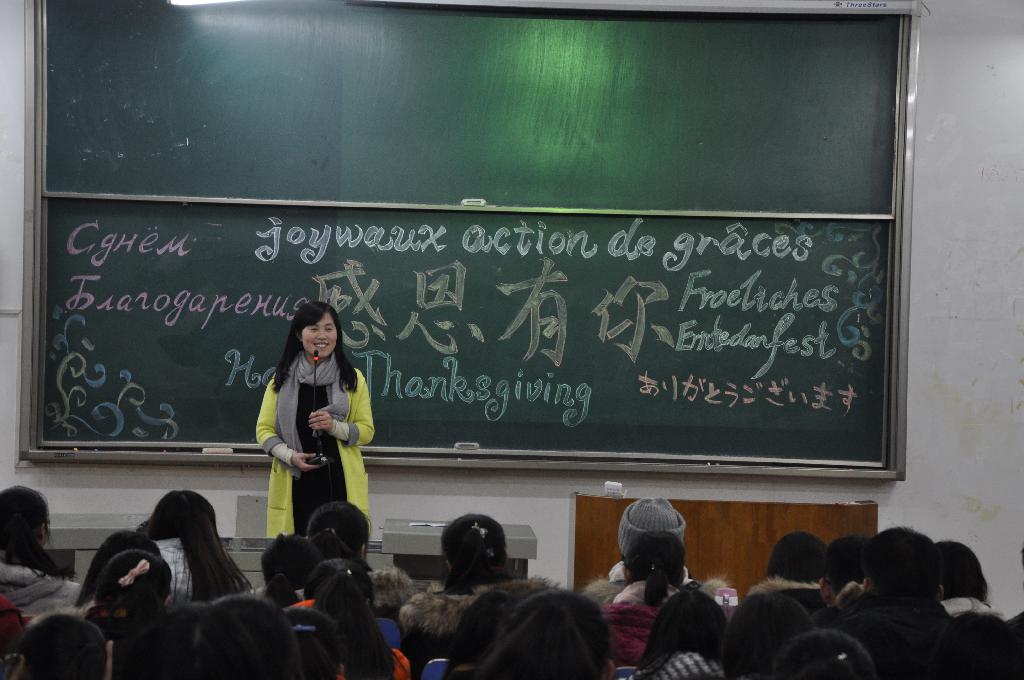 ThreeStars
Сднём
joywaux action de grâces
Благодарения
感恩有你
Froeliches
Erntedanfest
Thanksgiving
ありがとうございます